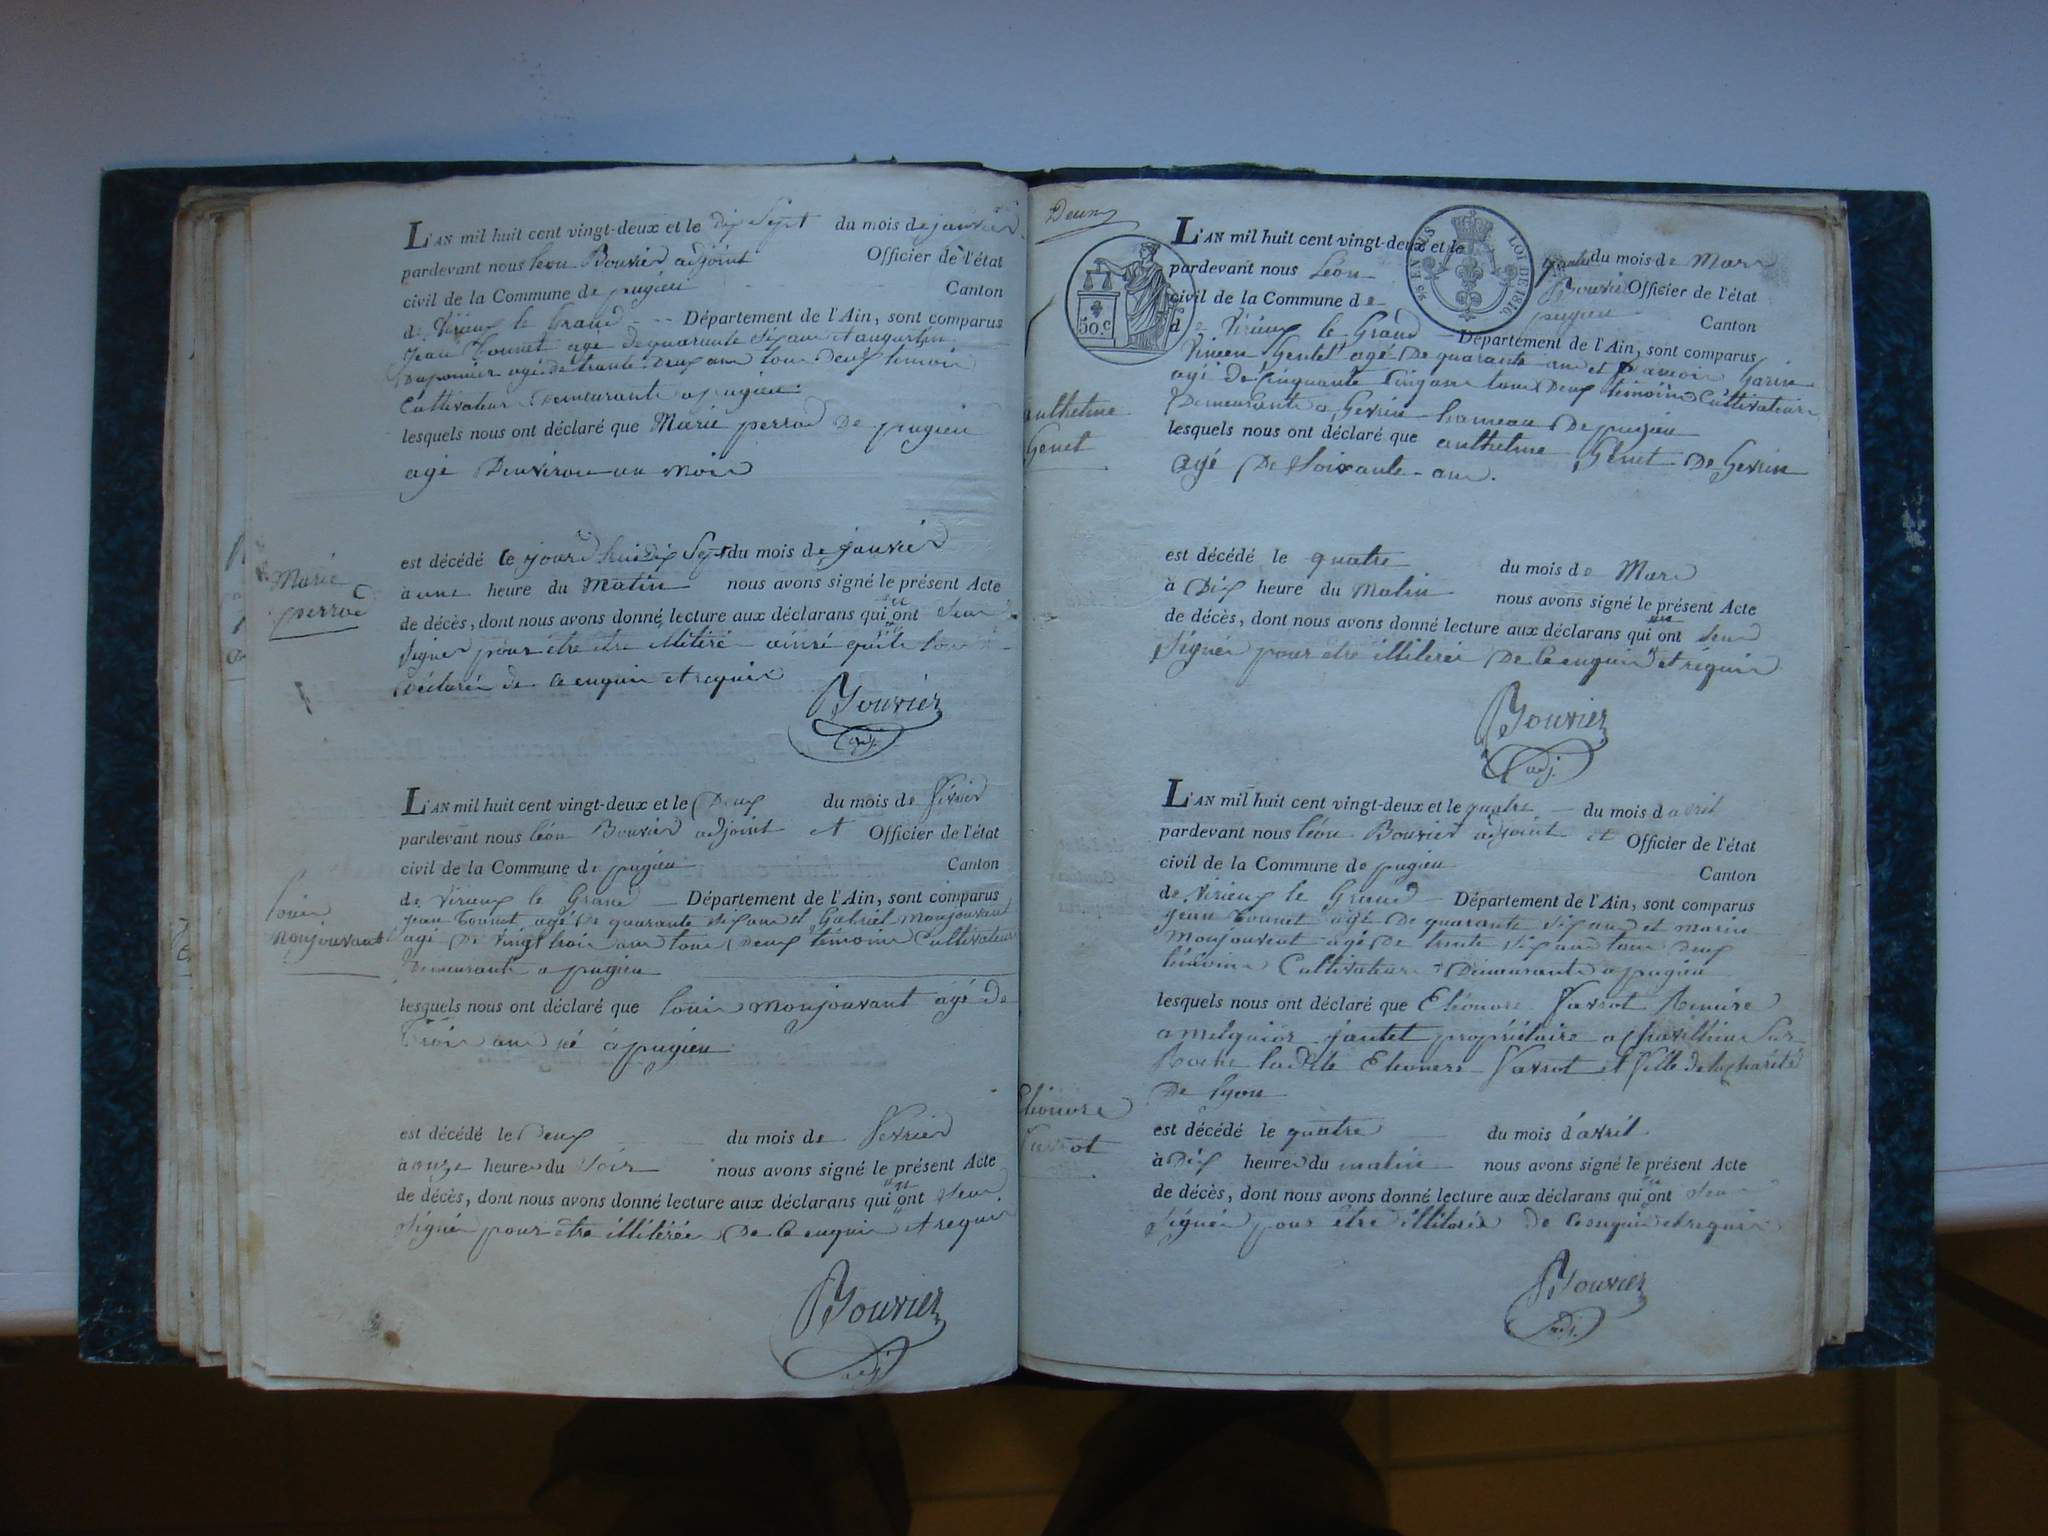 L'AN mil huit cent vingt-deux et le dix Sept du mois de janvier
pardevant nous leon Bouvier adjoint Officier de l'état
civil de la Commune de pugieu Canton
de Virieux le Grand Département de l'Ain, sont comparus
jean tournet age de quarante six ans et augustin
Duponier age de trante deux ans tous deux temoin
Cultivateur Demeurants a pugieu
lesquels nous ont déclaré que Marie perrod De pugieu
agé Denviron un mois
Marie
perrod
est décédé le jourd huit dix Sept du mois de janvier
à une heure du Matin nous avons signé le présent Acte
de décès, dont nous avons donné lecture aux déclarans qui n'ont seu
signer pour etre etre illitiré ainsi qu'ils
déclarés de ce enquis et requis
Bouvier
adj.
L'AN mil huit cent vingt-deux et le Deux du mois de fevrier
pardevant nous léon Bouvier adjoint et Officier de l'état
civil de la Commune de pugieu Canton
de Virieux le Grand Département de l'Ain, sont comparus
jean tournet agé de quarante six ans et Gabriel monjouvant
agé De vingt trois ans tous Deux témoins Cultivateurs
Demeurants a pugieu
louis
monjouvant
lesquels nous ont déclaré que louis monjouvant agé de
Trois ans né à pugieu
est décédé le Deux du mois de fevrier
à onze heures du soir nous avons signé le présent Acte
de décès, dont nous avons donné lecture aux déclarans qui n'ont seu
signer pour etre illitérés De ce enquis et requis
Bouvier
adj.
Deux
50 c
EN SUS
LOI DE 1816.
L'AN mil huit cent vingt-deux et le quatre du mois de Mars
pardevant nous Léon Bouvier Officier de l'état
civil de la Commune de pugieu Canton
de Virieux le Grand Département de l'Ain, sont comparus
Vincen Gentet agé De quarante ans et francois Garin
agé De Cinquante Cinq ans tous Deux témoins Cultivateurs
Demeurants a Gevrin hameau De pugieu
lesquels nous ont déclaré que anthelme Génet De Gevrin
agé De Soixante ans.
anthelme
Genet
est décédé le quatre du mois de Mars
à Dix heure du Matin nous avons signé le présent Acte
de décès, dont nous avons donné lecture aux déclarans qui n'ont seu
signer pour etre illiterés De ce enquis et requis
Bouvier
adj.
L'AN mil huit cent vingt-deux et le quatre du mois d avril
pardevant nous léon Bouvier adjoint et Officier de l'état
civil de la Commune de pugieu Canton
de Virieux le Grand Département de l'Ain, sont comparus
jean tournet agé De quarante six ans et marin
monjouvent agé De trente six ans tous deux
témoins Cultivateurs Demeurants a pugieu
lesquels nous ont déclaré que Eléonore Varrot
a melquior jantet propriétaire a Sur
Roche ladite Eleonore Varrot et fille de la charité
De lyon
Eléonore
Varrot
est décédé le quatre du mois d'avril
à Dix heures du matin nous avons signé le présent Acte
de décès, dont nous avons donné lecture aux déclarans qui n'ont seu
signer pour être illiterés de ce enquis et requis
Bouvier
adj.